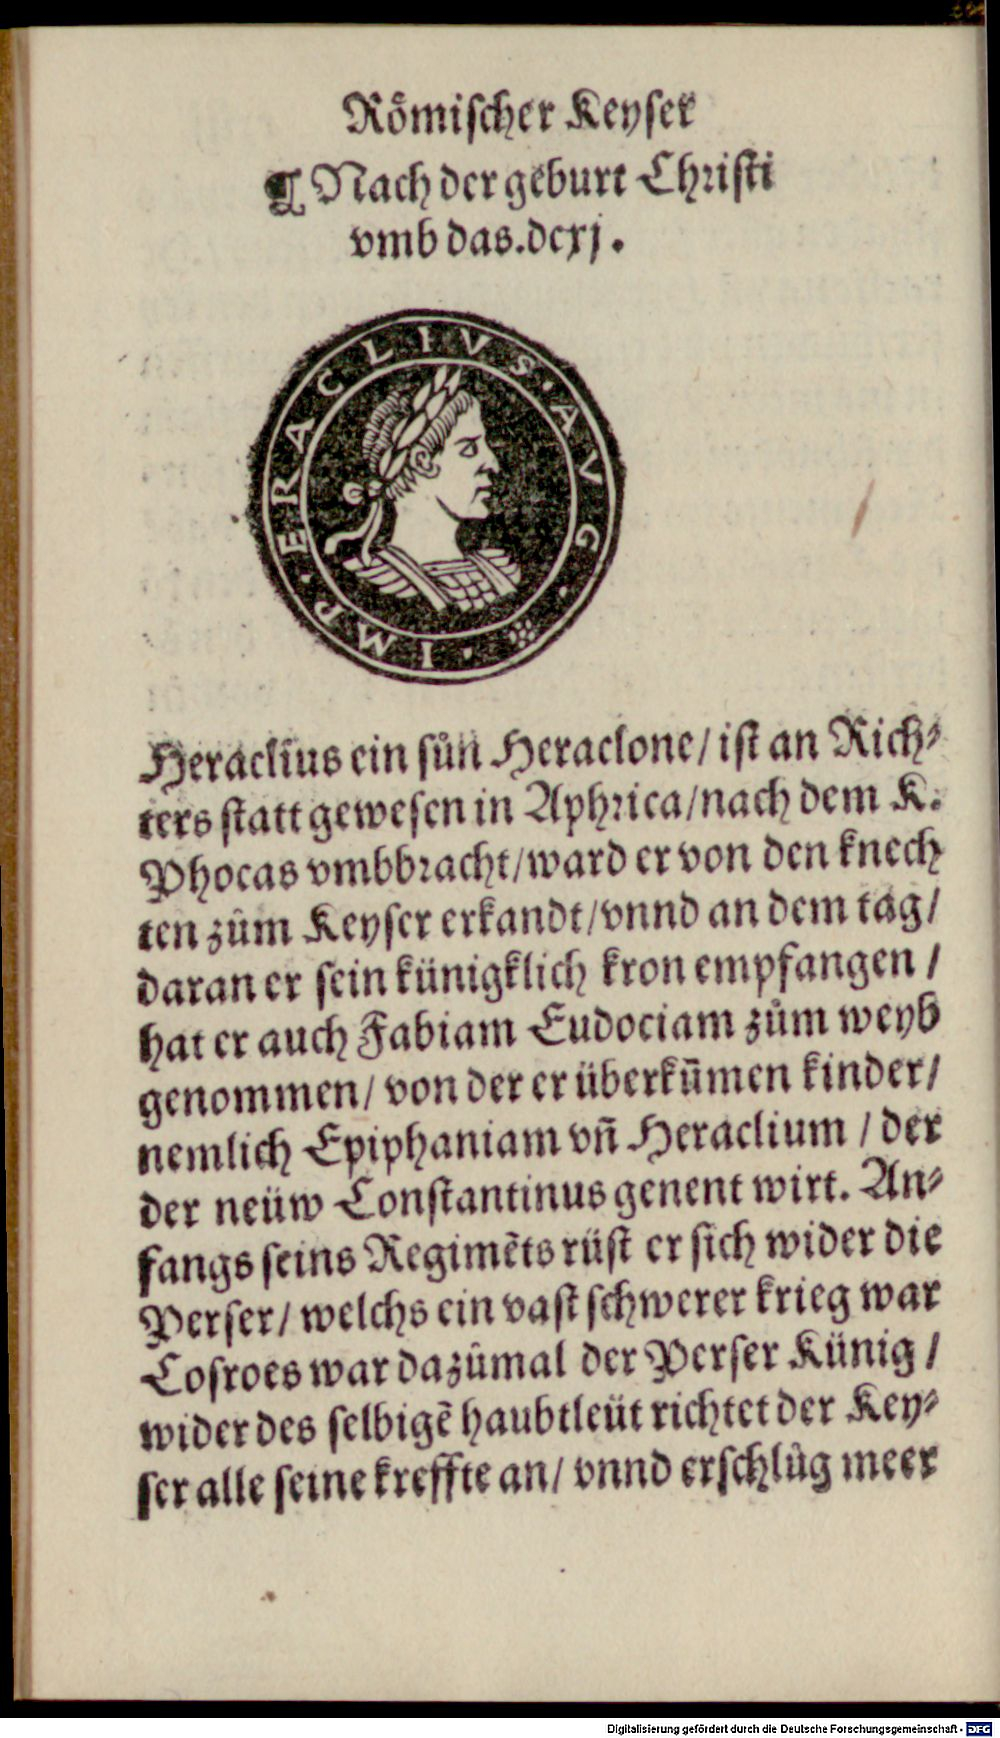 Römischer Keyser
¶ Nach der geburt Christi
vmb das.dcxj.
IMP. ERACLIVS. AVG.
Heraclius ein sůn Heraclone/ ist an Rich⸗
ters statt gewesen in Aphrica/nach dem K.
Phocas vmbbracht/ward er von den knech
ten zům Keyser erkandt/vnnd an dem tag/
daran er sein künigklich kron empfangen /
hat er auch Fabiam Eudociam zům weyb
genommen/ von der er überkūmen kinder/
nemlich Epiphaniam vñ Heraclium / der
der neüw Constantinus genent wirt. An⸗
fangs seins Regimēts rüst er sich wider die
Perser/ welchs ein vast schwerer krieg war
Cosroes war dazůmal der Perser Künig /
wider des selbigē haubtleüt richtet der Key⸗
ser alle seine kreffte an/ vnnd erschlůg meer
Digitalisierung gefördert durch die Deutsche Forschungsgemeinschaft - DFG